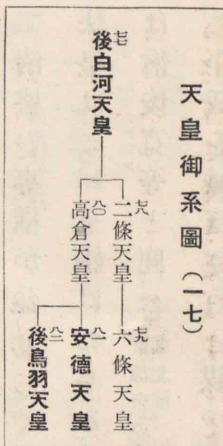 天皇御系圖(一七)
七七 後白河天皇
七八 二條天皇
七九 六條天皇
八〇 高倉天皇
八一 安德天皇
八二 後鳥羽天皇